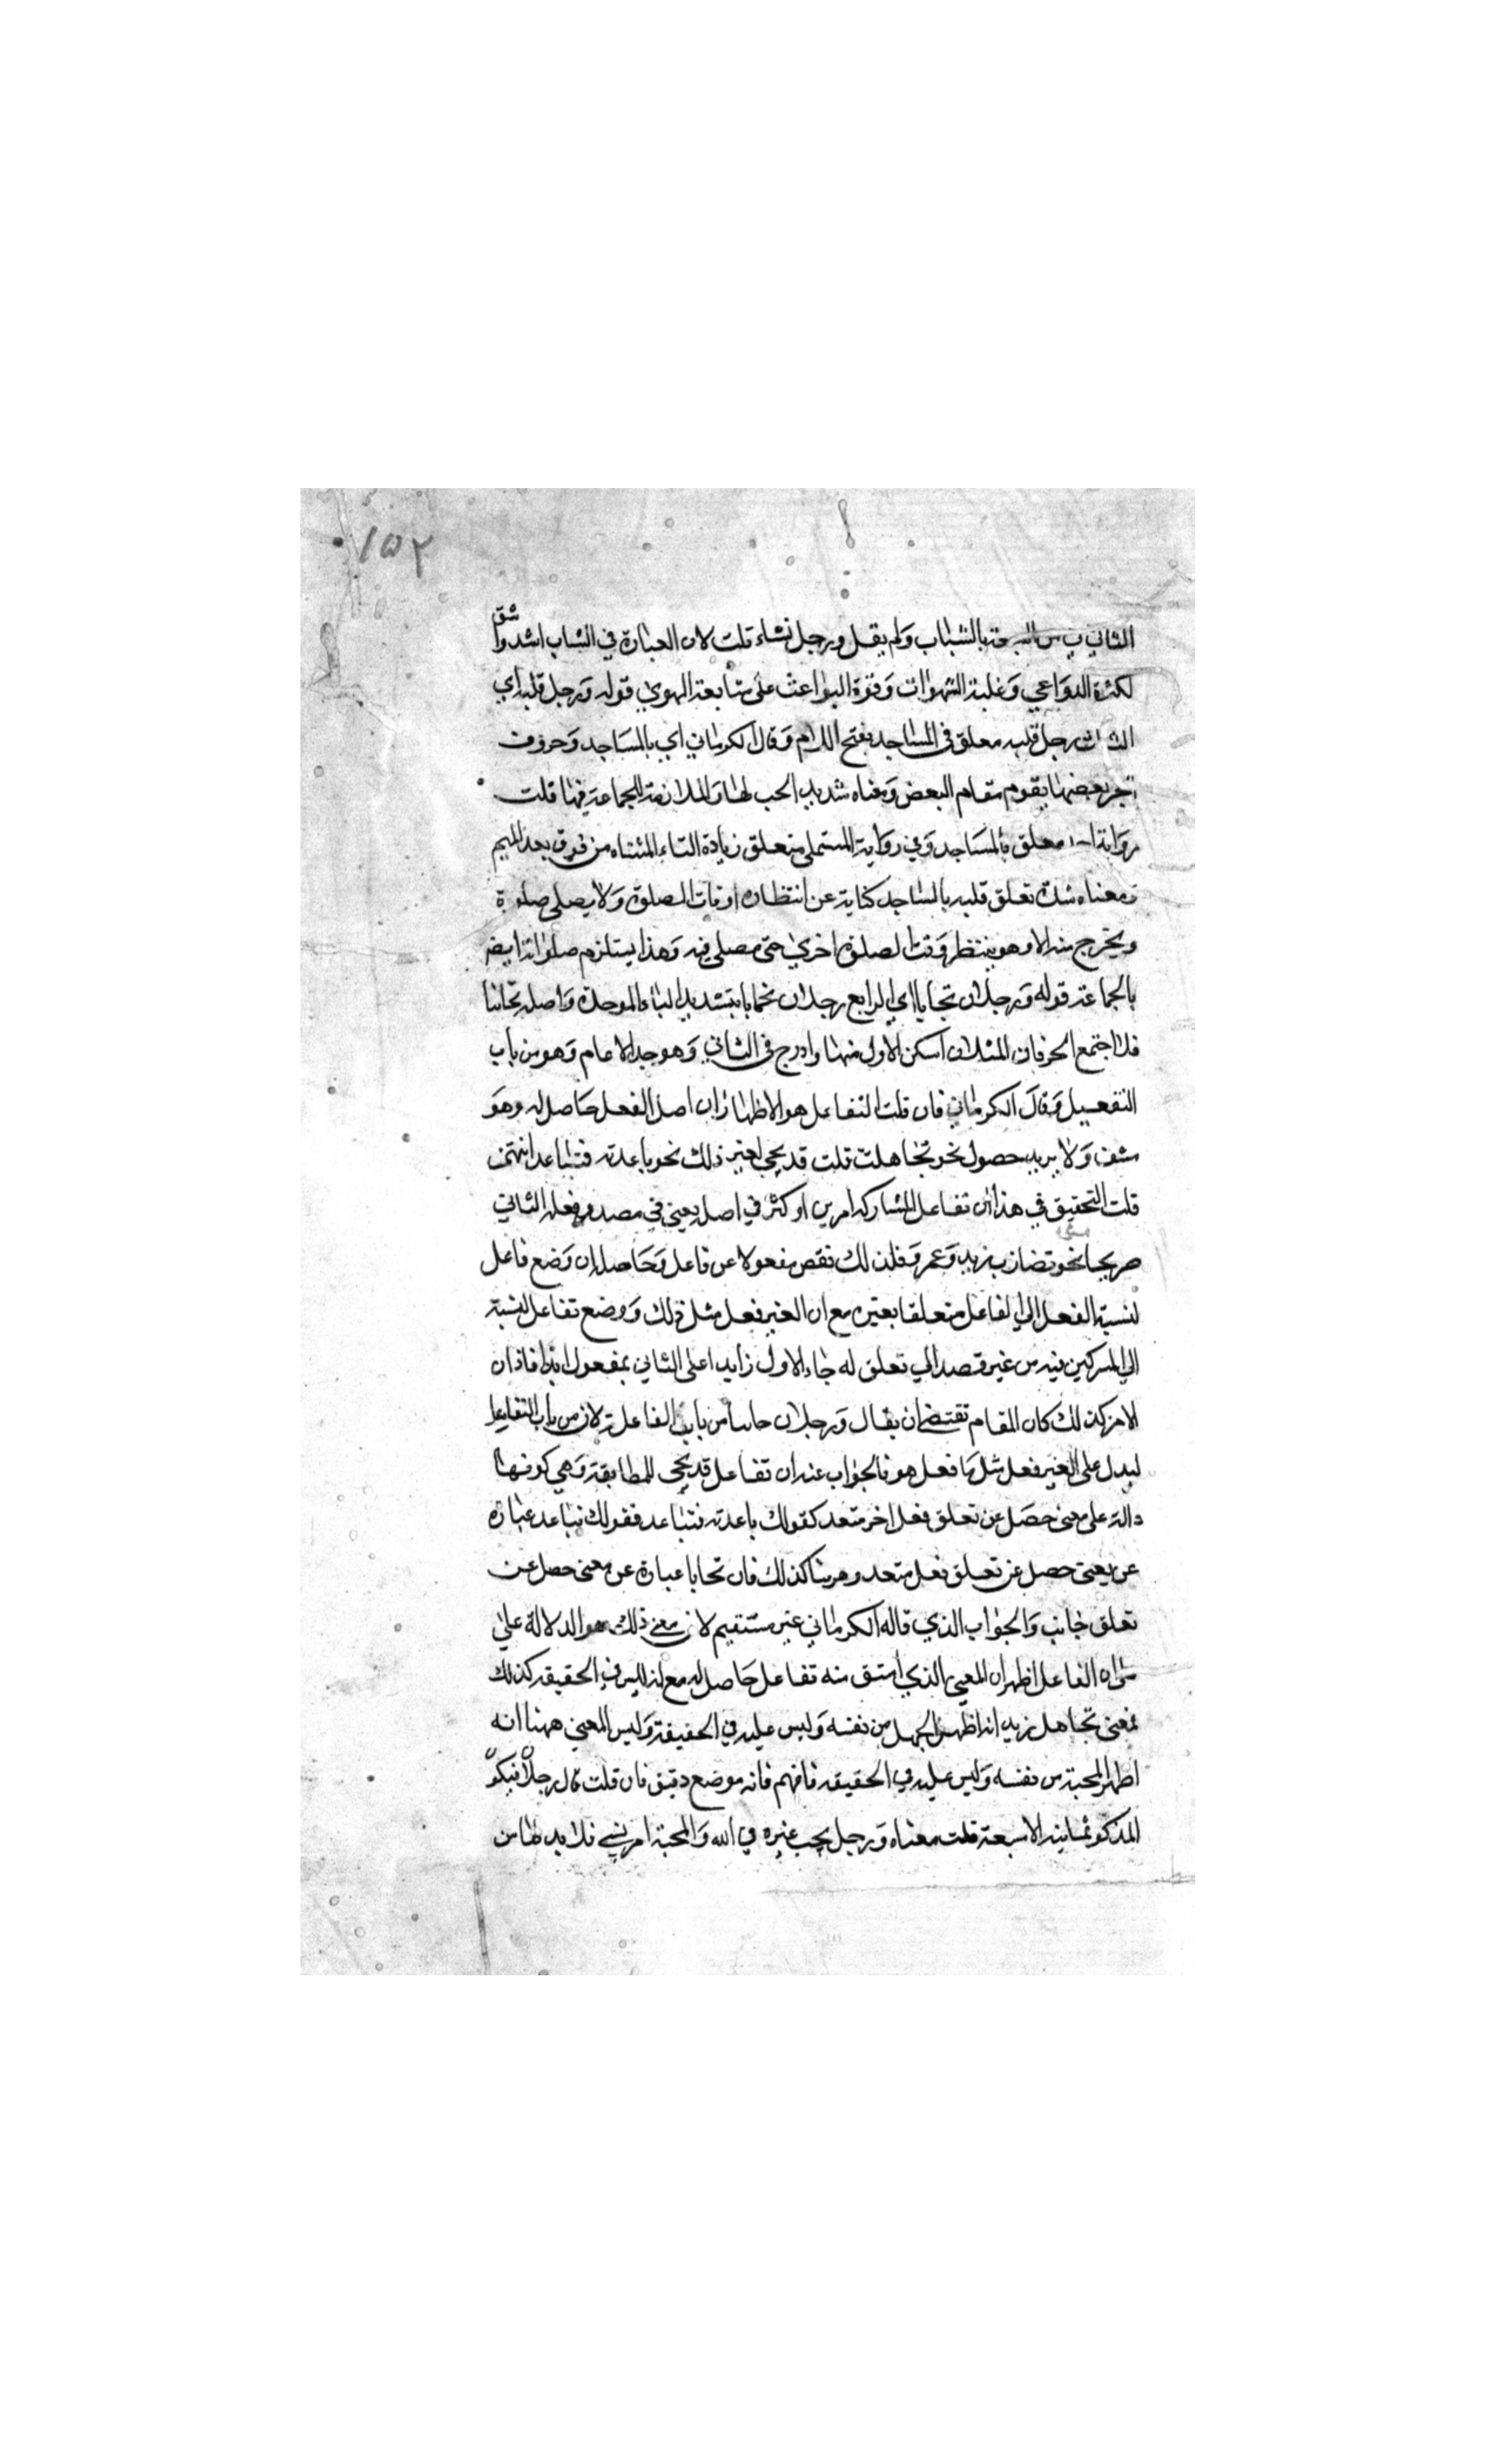 ١٥٢
الثاني من السبعة بالشباب ولم يقل ورجل نشاء قلت لان العبادة في الشاب اشد واشق
لكثرة الدواعي وغلبة الشهوات وقوة البواعث على متابعة الهوي قوله ورجل قلبه اي
الثالث رجل قلبه معلق في المساجد بفتح اللام وقال الكرماني اي بالمساجد وحروف
الجر بعضها يقوم مقام البعض ومعناه شديد الحب لها والملازمة للجماعة فيها قلت
رواية معلق بالمساجد وفي رواية المستملي متعلق زيادة التاء المثناه من فوق بعد الميم
ومعناه شدة تعلق قلبه بالمساجد كناية عن انتظاره اوقات الصلوة ولا يصلي صلوة
ويخرج منه الا وهو ينتظر وقت الصلوة اخري حتى يصلي فيه وهذا يستلزم صلواته ايضا
بالجماعة قوله ورجلان تحابا اي الرابع رجلان تحابا بتشديد الباء الموحدة واصله تحاببا
فلما اجتمع الحرفان المثلان اسكن الاول منهما وادرج في الثاني وهو حد الادغام وهو من باب
التفعيل وقال الكرماني فان قلت التفاعل هو الاظهار ان اصل الفعل حاصل له وهو
منتف ولا يريد حصوله نحو تجاهلت قلت قد يجي لغير ذلك نحو باعدته فتباعد انتهى
قلت التحقيق في هذا ان تفاعل لمشاركة امرين او اكثر في اصله يعني في مصدر فعله الثلاثي
صريحا نحو تضارب زيد وعمرو فلذلك نقص مفعولا عن فاعل وحاصله ان وضع فاعل
لنسبة الفعل الي الفاعل متعلقا بغيره مع ان الغير فعل مثل ذلك ووضع تفاعل لنسبته
الي المشركين فيه من غير قصد الي تعلق له جاء الاول زايدا على الثاني بمفعول ابدا فاذا كان
الامر كذلك كان المقام تقتضي ان يقال ورجلان حاببا من باب المفاعلة لا من باب التفاعل
ليدل على الغير فعل مثل ما فعل هو فالجواب عنه ان تفاعل قد يجي للمطابقة وهي كونها
دالة على معنى حصل عن تعلق فعل اخر متعد كقولك باعدته فتباعد فقولك تباعد عبارة
عن معنى حصل عن تعلق فعل متعد وههنا كذلك فان تحابا عبارة عن معنى حصل عن
تعلق حابب والجواب الذي قاله الكرماني غير مستقيم لان معنى ذلك هو الدلالة على
ان الفاعل اظهر ان المعنى الذي اشتق منه تفاعل حاصل له مع انه ليس في الحقيقة كذلك
فمعنى تجاهل زيد انه اظهر الجهل من نفسه وليس عليه في الحقيقة وليس المعنى ههنا انه
اظهر المحبة من نفسه وليس عليه في الحقيقة فافهم فانه موضع دقيق فان قلت قال رجلان فيكون
المذكور ثمانية لا سبعة قلت معناه ورجل يحب غيره في الله والمحبة امر نسبي فلا بد لها من